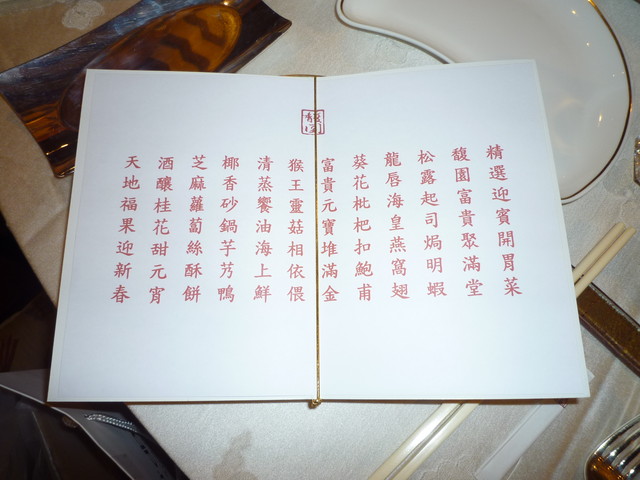 馥園
精選迎賓開胃菜
馥園富貴聚滿堂
松露起司焗明蝦
龍唇海皇燕窩翅
葵花枇杷扣鮑甫
富貴元寶堆滿金
猴王靈菇相依偎
清蒸饗油海上鮮
椰香砂鍋芋艿鴨
芝麻蘿蔔絲酥餅
酒釀桂花甜元宵
天地福果迎新春